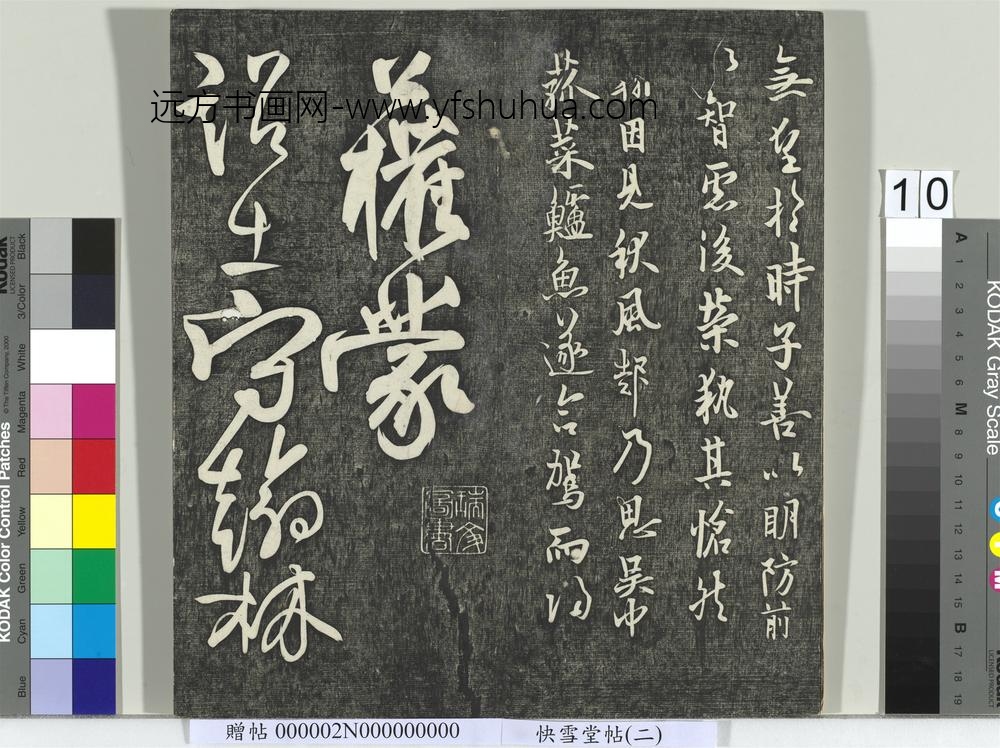 無望於時子善以明防前
以智慮後榮執其愴然
翰因見秋風起乃思吳中
菰菜鱸魚遂命駕而歸
羲權蒙
詔士守翰林
快雪堂帖(二)
贈帖 000002N000000000
远方书画网-www.yfshuhua.com
10
KODAK Color Control Patches
Kodak
LICENSED PRODUCT
© The Tiffen Company, 2000
Blue
Cyan
Green
Yellow
Red
Magenta
White
3/Color
Black
KODAK Gray Scale
A 1 2 3 4 5 6 M 8 9 10 11 12 13 14 15 B 17 18 19